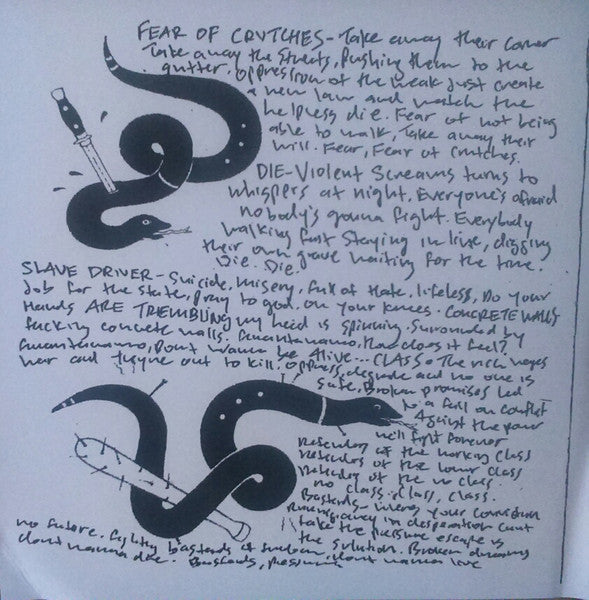 FEAR OF CRUTCHES - Take away their corner
Take away the streets, Pushing them to the
gutter. Oppression of the weak Just create
a new law and watch the
helpless die. Fear of not being
able to walk, Take away their
will. Fear, Fear of crutches.
DIE - Violent Screams turns to
whispers at night. Everyone's afraid
nobody's gonna fight. Everybody
walking fast Staying in line, digging
their own grave waiting for the time.
Die. Die.
SLAVE DRIVER - Suicide, misery, full of Hate, lifeless, Do your
Job for the state, pray to god, on your knees. CONCRETE WALLS
Hands ARE TREMBLING my head is spinning. Surrounded by
fucking concrete walls. Guantanamo, How does it feel?
Guantanamo, Don't wanna be Alive... CLASS - The rich wages
war and theyre out to kill. Oppress, degrade and no one is
safe. Broken promises led
to a full on conflict
Against the power
will fight forever
of the working class
of the lower class
of the no class.
no class, class, class.
Bastards - your conviction
in desperation cant
take the pressure escape is
the solution. Broken dreams
no future. fighting bastards of
dont wanna die. Bastards, pressure, dont wanna live